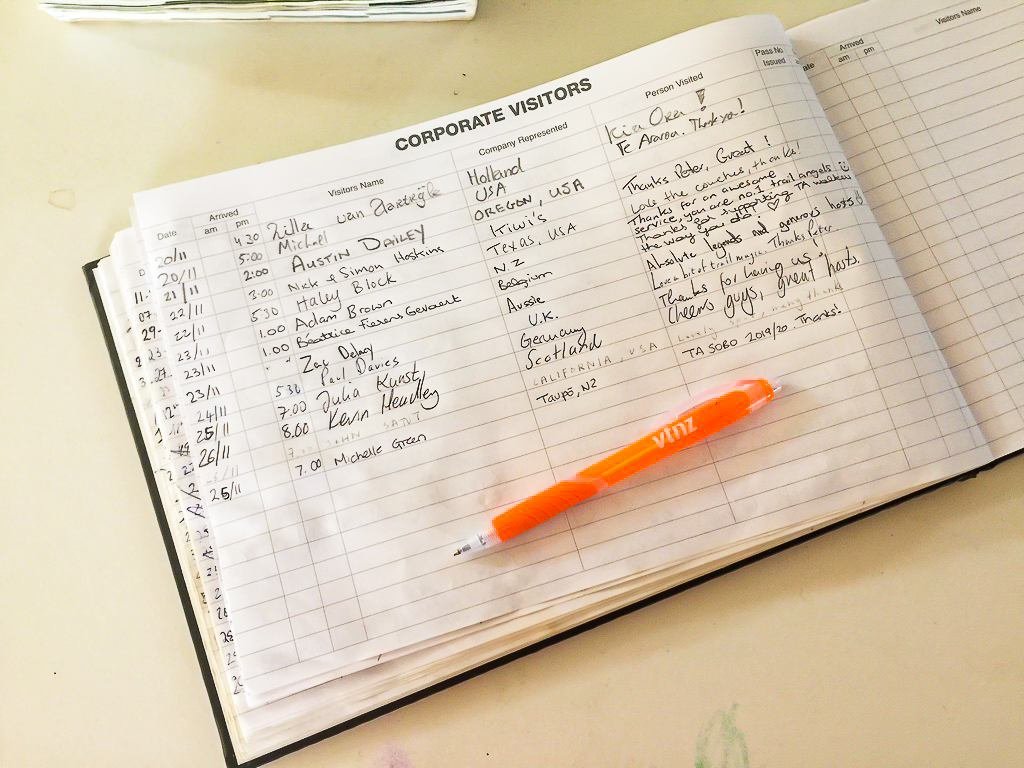 CORPORATE VISITORS
Date Arrived am pm Visitors Name Company Represented Person Visited Pass No. Issued
20/11 4 30 Zilla van Holland Kia Ora!
20/11 5:00 Michael USA Te Araroa. Thank you!
21/11 2:00 AUSTIN DAILEY OREGON, USA
22/11 3:00 Nick & Simon Hoskins Kiwi's Thanks Peter, Great!
22/11 5 30 Haley Block Texas, USA Love the couches, thanks!
23/11 1.00 Adam Brown N.Z Thanks for an awesome service, you are no.1 trail angels
23/11 1.00 Beatrice Fierens Gevaert Belgium Thanks for supporting TA walkers the way you do! ♡
23/11 " Zac Delay Aussie Absolute legends and generous hosts
24/11 5 30 Paul Davies U.K. Love a bit of trail magic. Thanks Peter
25/11 7.00 Julia Kunst Germany Thanks for having us!
26/11 8.00 Kevin Headley Scotland Cheers guys, great hosts.
7. JOHN CALIFORNIA, USA Lovely many thanks
25/11 7.00 Michelle Green Taupō, NZ TA SOBO 2019/20 Thanks!
vtnz
Arrived am pm Visitors Name